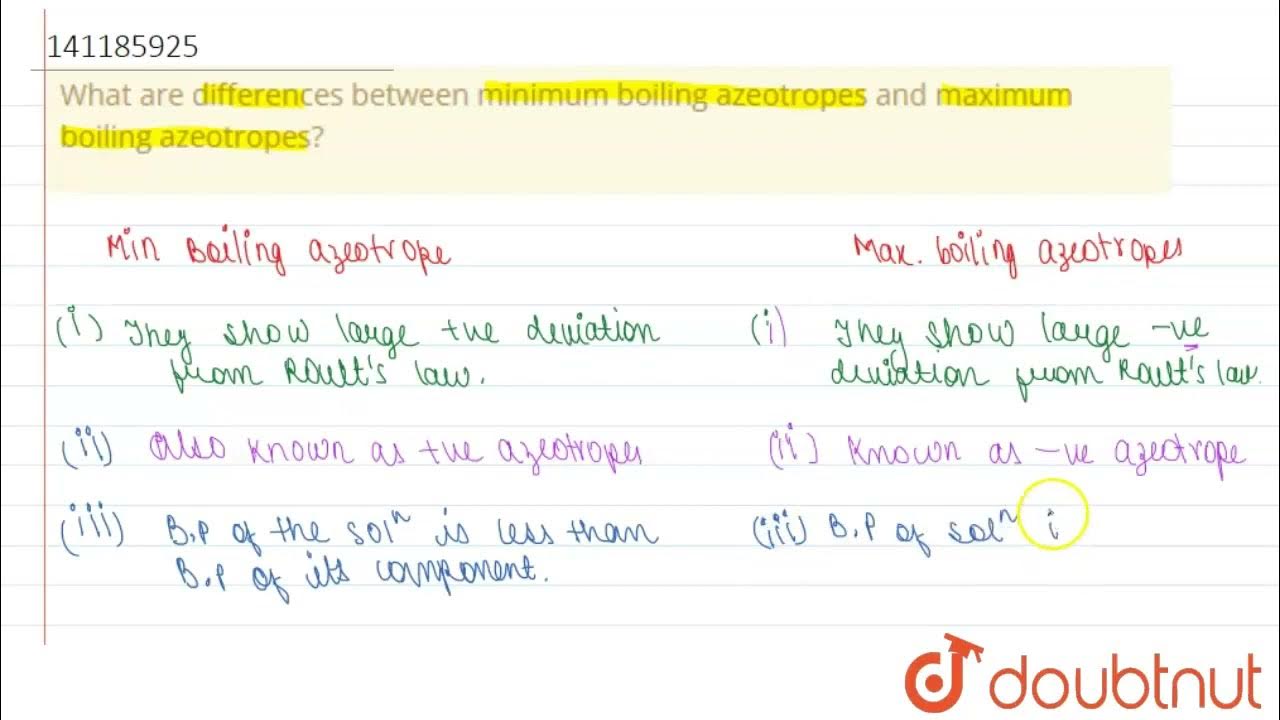 141185925
What are differences between minimum boiling azeotropes and maximum
boiling azeotropes?
Min Boiling azeotrope
Max. boiling azeotropes
(i) They show large +ve deviation
from Roult's law.
(i) They show large -ve
deviation from Roult's law.
(ii) Also known as +ve azeotropes
(ii) Known as -ve azeotrope
(iii) B.P of the solⁿ is less than
B.P of its component.
(iii) B.P of solⁿ i
doubtnut